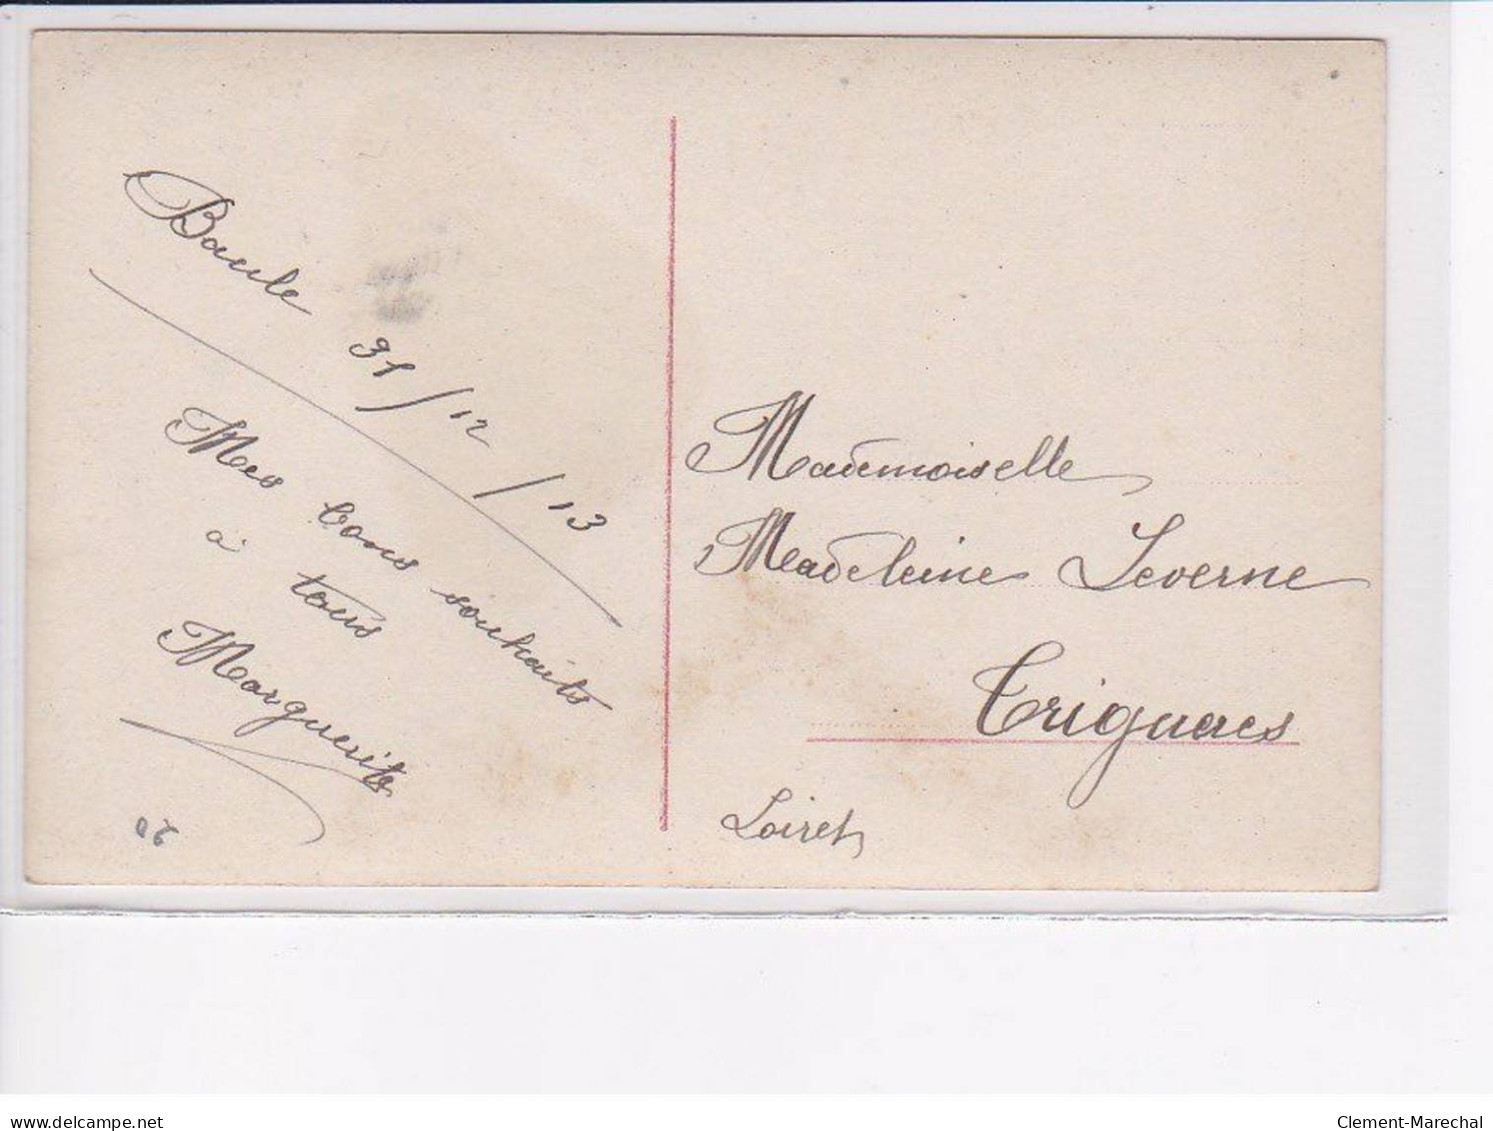 Baule 31/12/13
Mes bons souhaits
à tous
Marguerite
Mademoiselle
Madeleine Leverne
Trignacs
Loiret
delcampe.net
Clement-Marechal